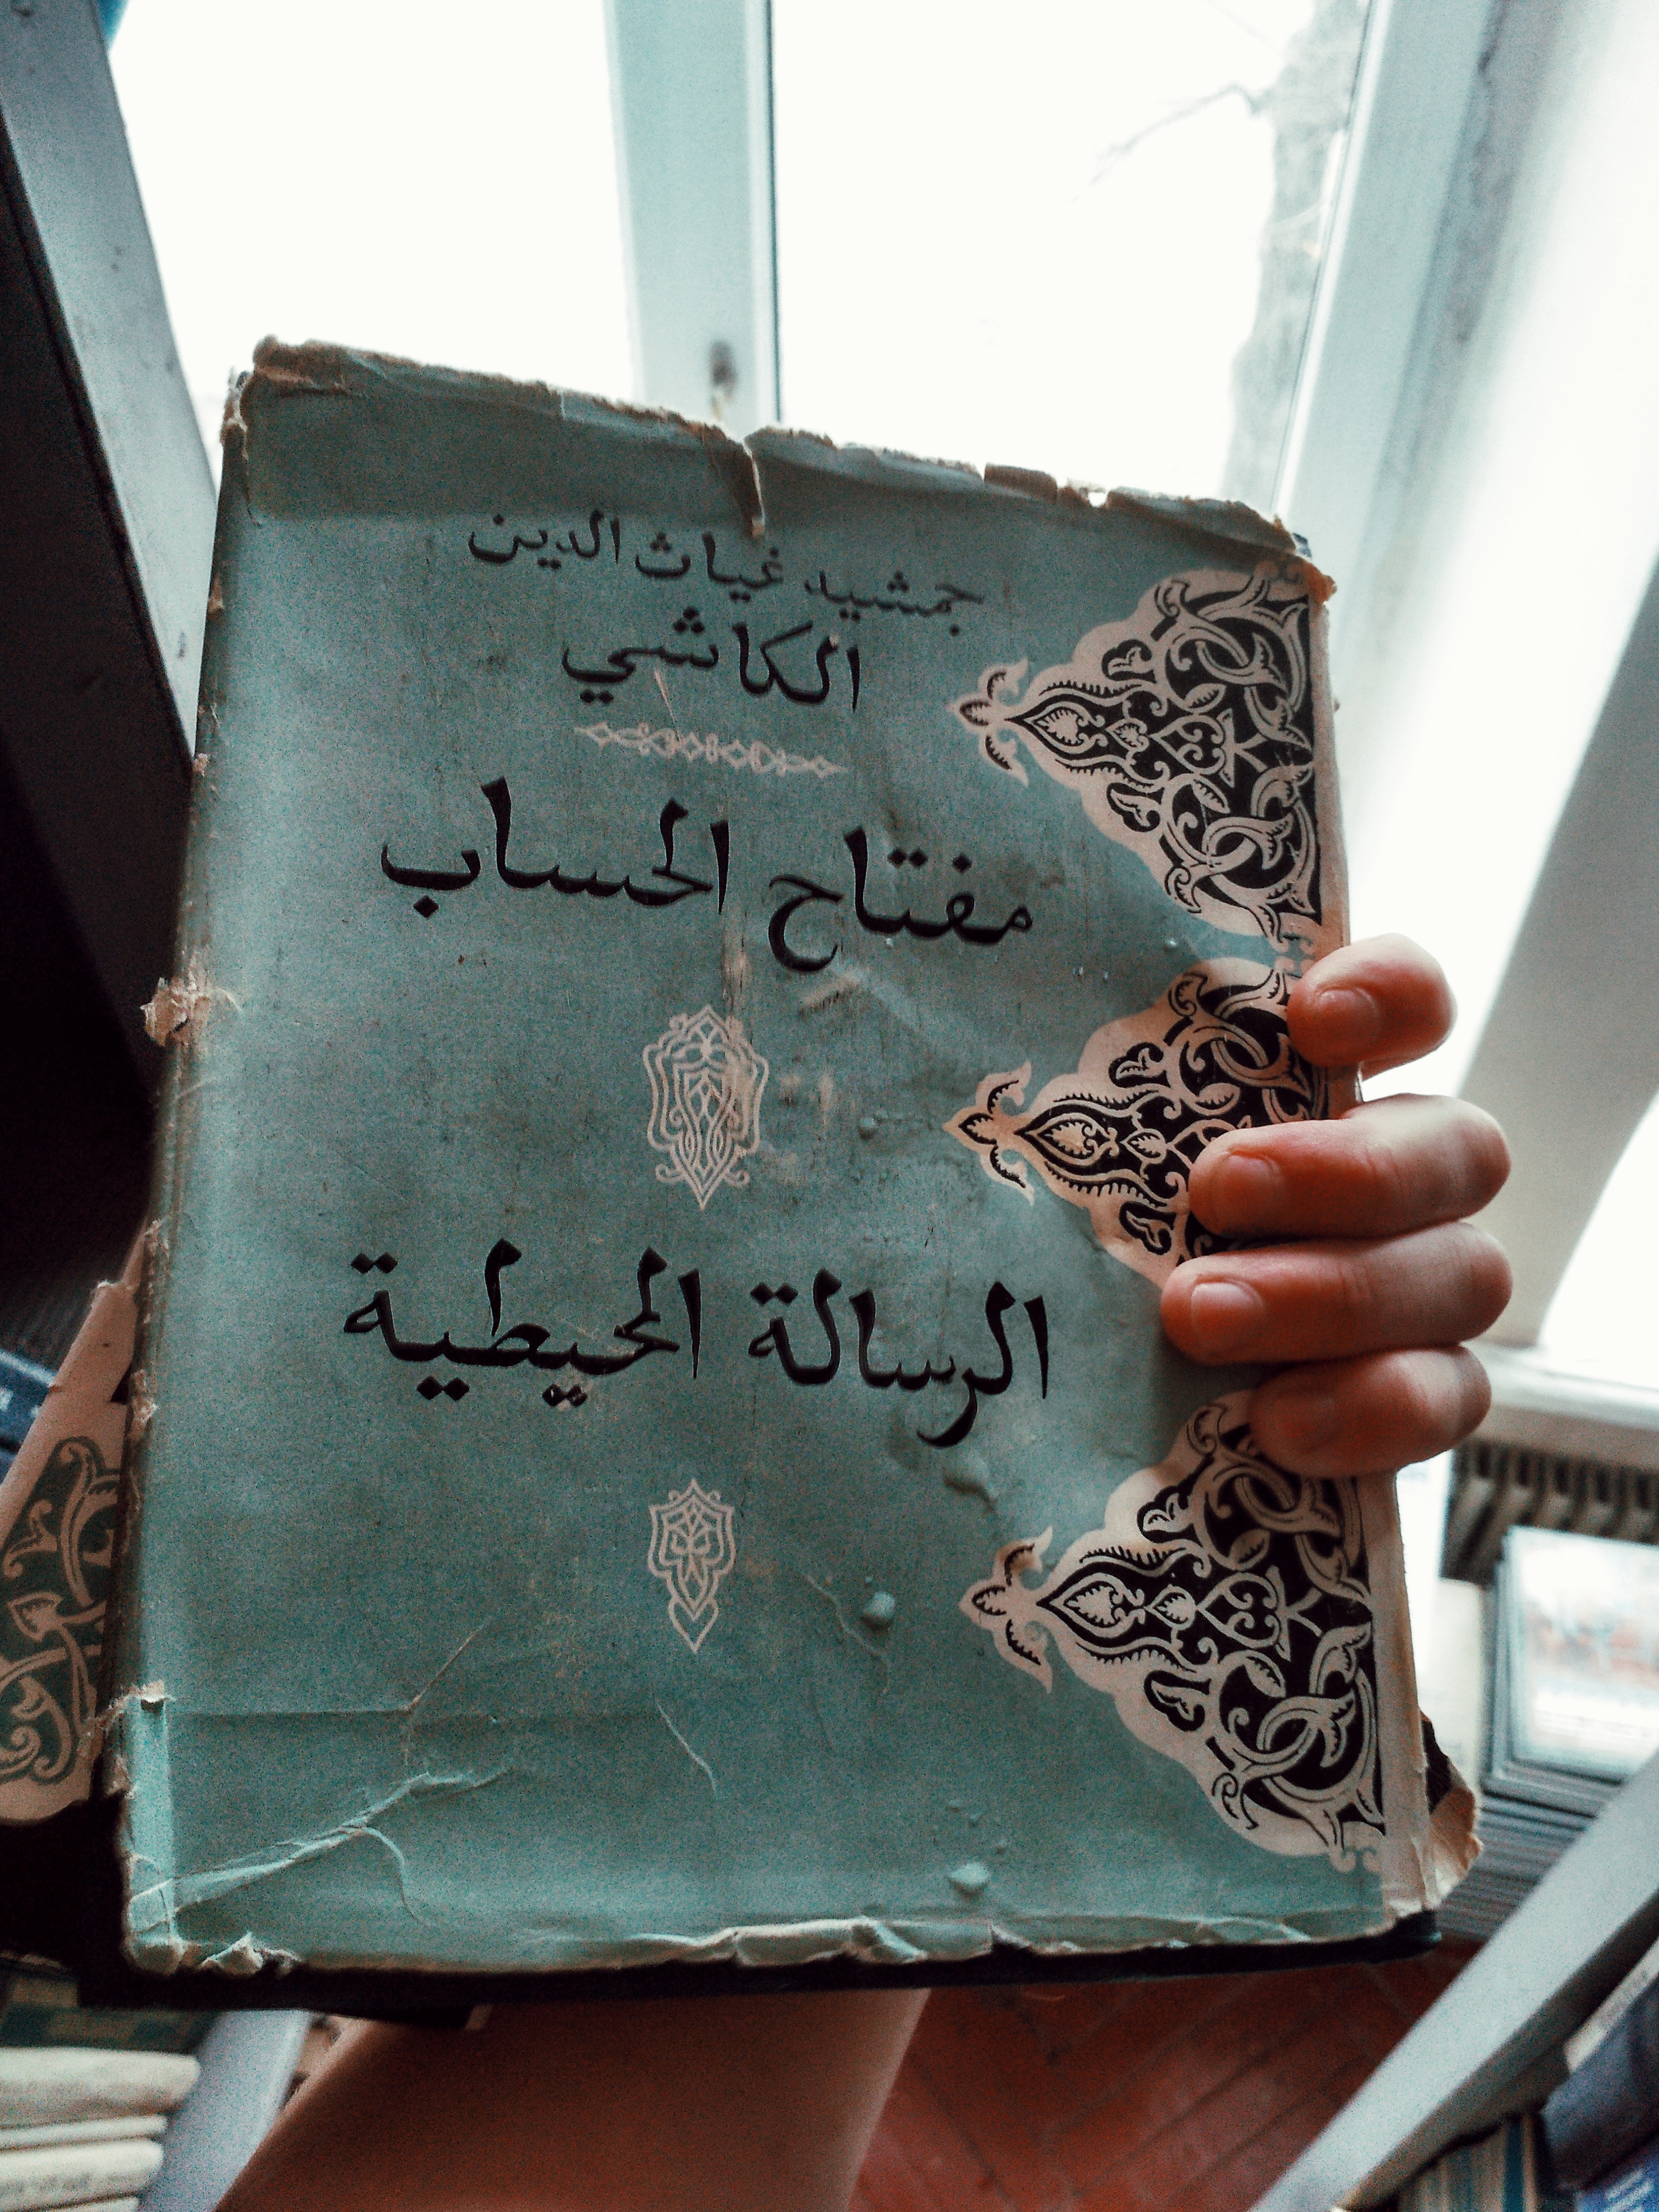 جمشيد غياث الدين
الكاشي
مفتاح الحساب
الرسالة المحيطية